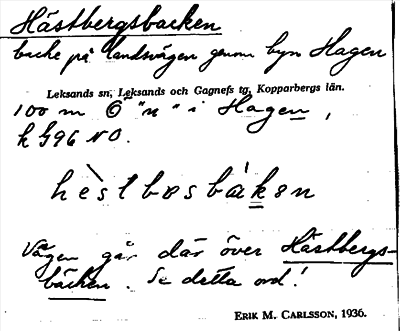 Hästbergsbacken
backe på landsvägen genom byn Hagen
Leksands sn, Leksands och Gagnefs tg, Kopparbergs län.
100 m Ö "n" i Hagen,
k G96 NO.
hèstbœsbákən
Vägen går där över Hästbergs-
bäcken. Se detta ord!
ERIK M. CARLSSON, 1936.